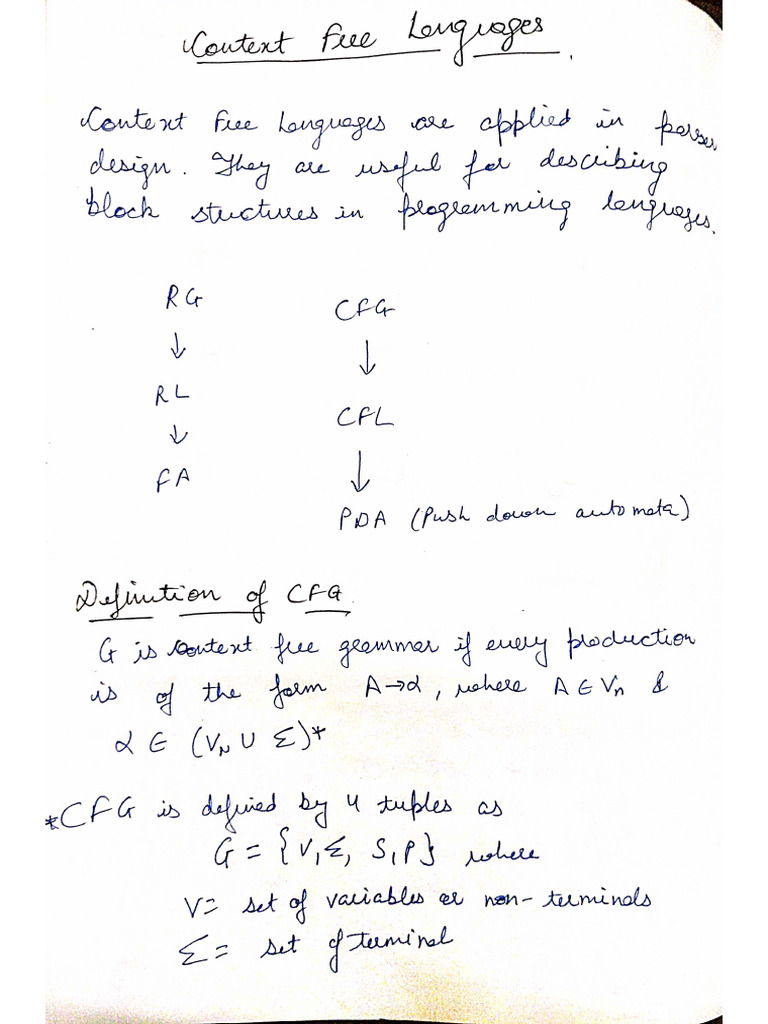 Context Free Languages.
Context Free Languages are applied in parser
design. They are useful for describing
block structures in programming languages.
RG CFG
↓ ↓
RL CFL
↓ ↓
FA PDA (Push down automata)
Definition of CFG.
G is context free grammar if every production
is of the form A→α, where A ∈ Vn &
α ∈ (VN ∪ Σ)*
*CFG is defined by 4 tuples as
G = {V, Σ, S, P} where
V = set of variables or non-terminals
Σ = set of terminal